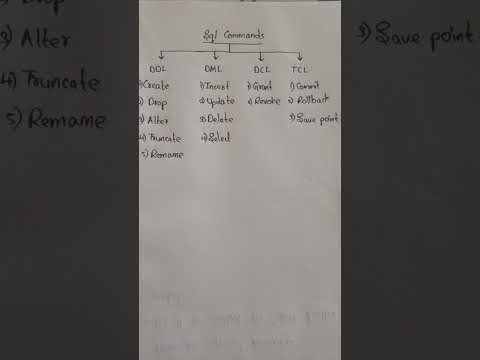 Sql Commands
DDL DML DCL TCL
1) Create 1) Insert 1) Grant 1) Commit
2) Drop 2) Update 2) Revoke 2) Rollback
3) Alter 3) Delete 3) Save point
4) Truncate 4) Select
5) Rename
Drop
3) Alter
4) Truncate
5) Rename
3) Save point